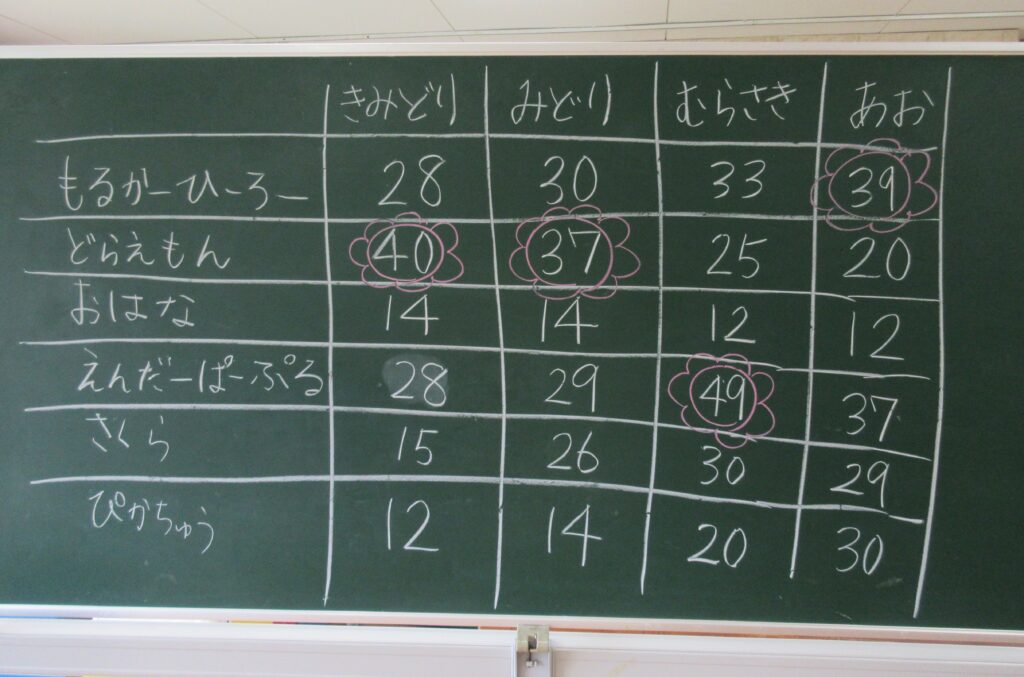 きみどり みどり むらさき あお
もるかーひーろー 28 30 33 39
どらえもん 40 37 25 20
おはな 14 14 12 12
えんだーぱーぷる 28 29 49 37
さくら 15 26 30 29
ぴかちゅう 12 14 20 30